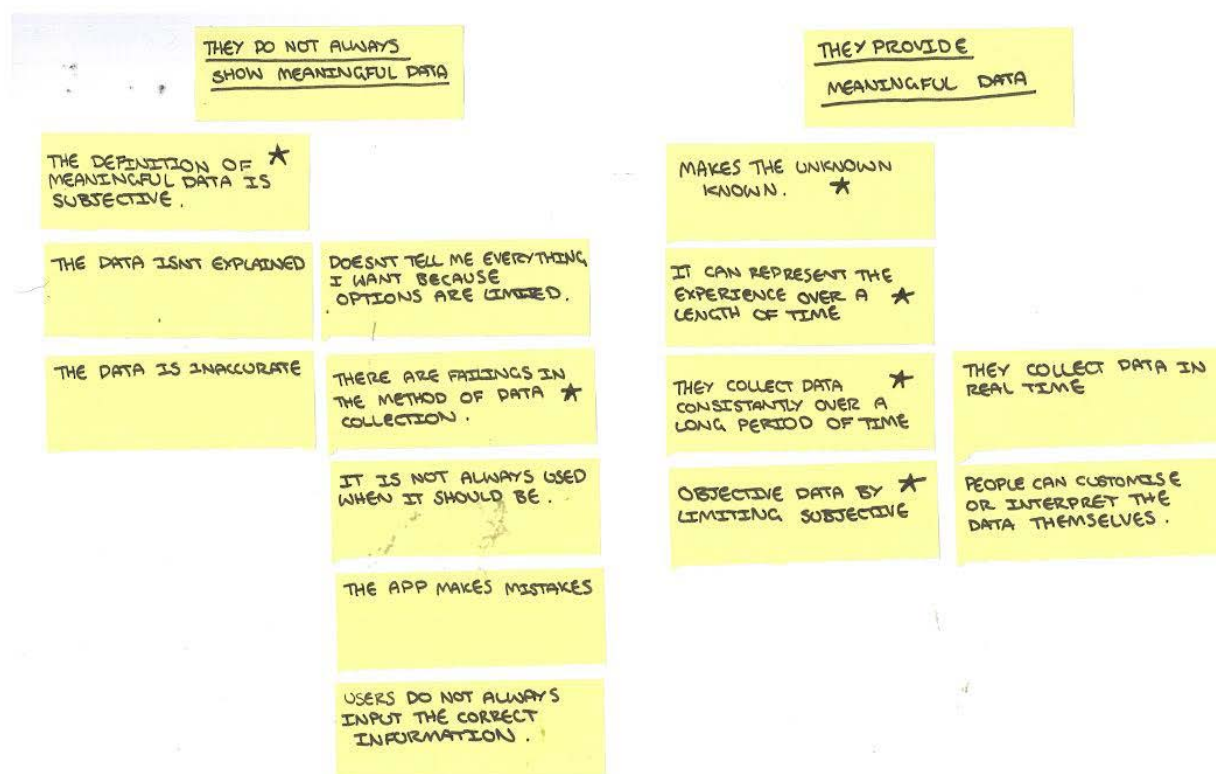 THEY DO NOT ALWAYS
SHOW MEANINGFUL DATA
THE DEFINITION OF ★
MEANINGFUL DATA IS
SUBJECTIVE.
THE DATA ISNT EXPLAINED
DOESNT TELL ME EVERYTHING
I WANT BECAUSE
OPTIONS ARE LIMITED.
THE DATA IS INACCURATE
THERE ARE FAILINGS IN
THE METHOD OF DATA ★
COLLECTION.
IT IS NOT ALWAYS USED
WHEN IT SHOULD BE.
THE APP MAKES MISTAKES
USERS DO NOT ALWAYS
INPUT THE CORRECT
INFORMATION.
THEY PROVIDE
MEANINGFUL DATA
MAKES THE UNKNOWN
KNOWN. ★
IT CAN REPRESENT THE
EXPERIENCE OVER A ★
LENGTH OF TIME
THEY COLLECT DATA ★
CONSISTANTLY OVER A
LONG PERIOD OF TIME
THEY COLLECT DATA IN
REAL TIME
OBJECTIVE DATA BY ★
LIMITING SUBJECTIVE
PEOPLE CAN CUSTOMISE
OR INTERPRET THE
DATA THEMSELVES.